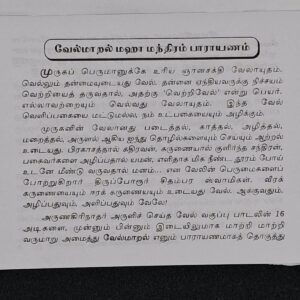 வேல்மாறல் மஹா மந்திரம் பாராயணம்
முருகப் பெருமானுக்கே உரிய ஞானசக்தி வேலாயுதம்.
வெல்லும் தன்மையுடையது வேல். தன்னை ஏந்தியவர்க்கு நிச்சயம்
வெற்றியைத் தருவதால், அதற்கு 'வெற்றிவேல்' என்று பெயர்.
எல்லாவற்றையும் வெல்வது வேலாயுதம். இந்த வேல்
வெளிப்பகையை மட்டுமல்ல, நம் உட்பகையையும் அழிக்கும்.
முருகனின் வேலானது படைத்தல், காத்தல், அழித்தல்,
மறைத்தல், அருளல் ஆகிய ஐந்து தொழில்களையும் செய்யும் ஆற்றல்
உடையது. பிரகாசத்தால் கதிரவன், கருணையால் குளிர்ந்த சந்திரன்,
பகைவர்களை அழிப்பதால் யமன், எளிதாக மிக நீண்ட தூரம் போய்
உடனே மீண்டு வருவதால் மனம்... என வேலின் பெருமைகளைப்
போற்றுகிறார் திருப்போரூர் சிதம்பர ஸ்வாமிகள். வீரக்
கருணையையும் ஈரக் கருணையையும் உடையது வேல். ஆக்குவதும்,
அழிப்பதுவும், அளிப்பதுவும் வேலே!
அருணகிரிநாதர் அருளிச் செய்த வேல் வகுப்பு பாடலின் 16
அடிகளை, முன்னும் பின்னும் இடையிலுமாக மாற்றி மாற்றி
வருமாறு அமைத்து வேல்மாறல் எனும் பாராயணமாகத் தொகுத்து